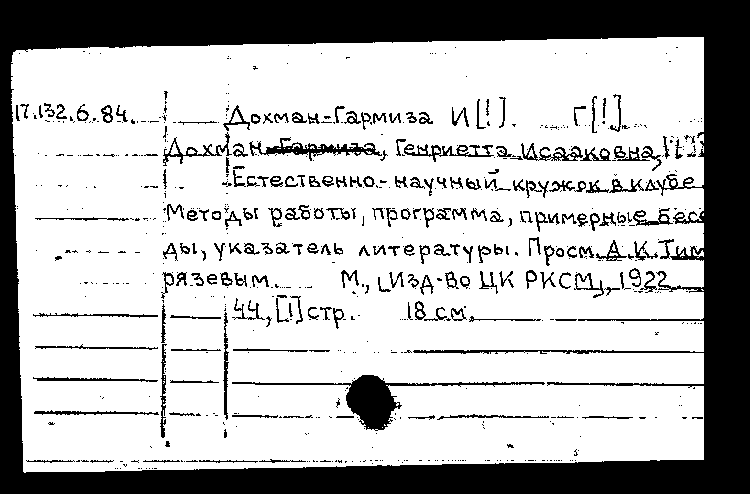 17.132.6.84. Дохман-Гармиза И[!]. Г[!]
Дохман, Генриетта Исааковна,
Естественно-научный кружок в клубе.
Методы работы, программа, примерные бесе
ды, указатель литературы. Просм. А.К. Тим
рязевым. М., [Изд-во ЦК РКСМ], 1922.
44, [1] стр. 18 см.